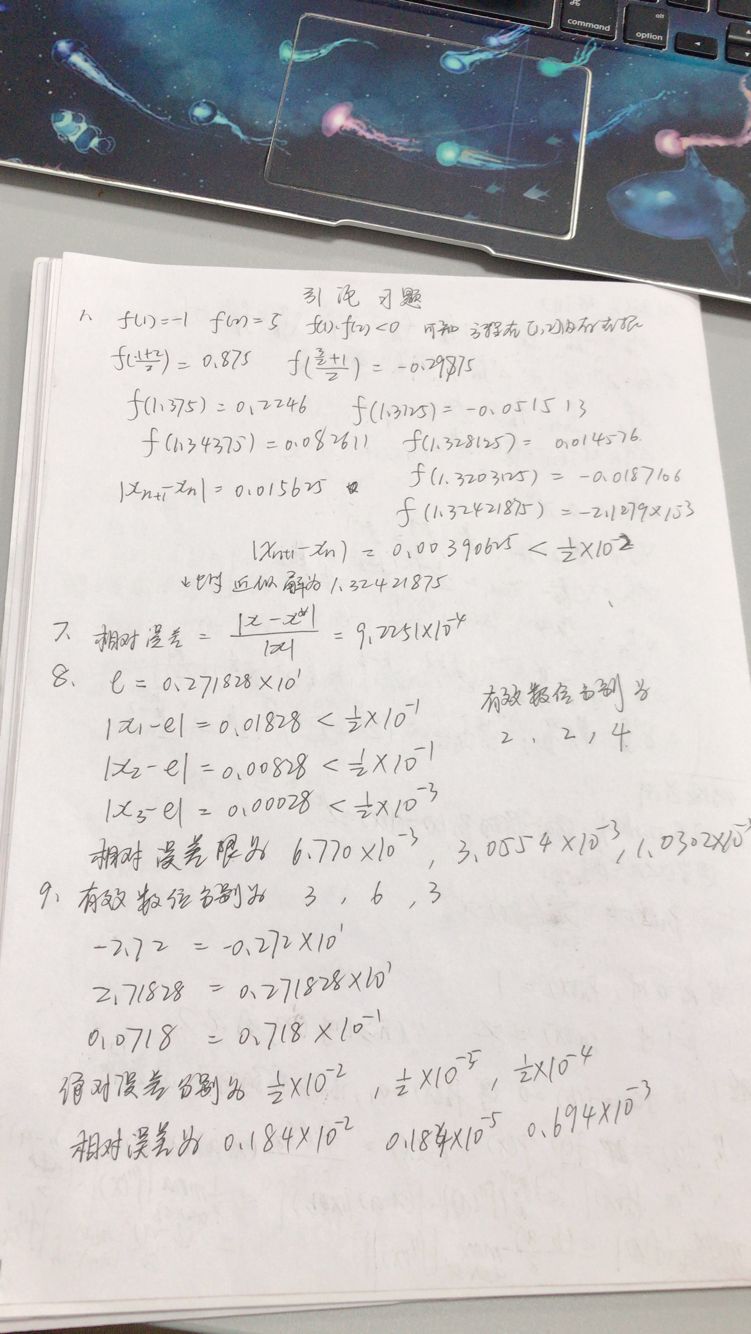 command
alt
option
引论 习题
1. f(1)=-1 f(2)=5 f(1)·f(2)<0 可知 方程在[1,2]内存在根
f(\frac{1+2}{2}) = 0.875 f(\frac{\frac{3}{2}+1}{2}) = -0.29875
f(1.375)=0.2246 f(1.3125)=-0.051513
f(1.34375)=0.082611 f(1.328125)= 0.014576
|x_{n+1}-x_n|=0.015625 f(1.3203125) = -0.0187106
f(1.32421875) =-2.1279×10^{-3}
|x_{n+1}-x_n| = 0.00390625 < \frac{1}{2}×10^{-2}
近似解为 1.32421875
7. 相对误差 = \frac{|x-x^*|}{|x|} = 9.2251×10^{-4}
8. e=0.271828×10^1
|x_1-e|=0.01828 < \frac{1}{2}×10^{-1} 有效数位分别为
|x_2-e|=0.00828 < \frac{1}{2}×10^{-1} 2, 2, 4
|x_3-e|=0.00028 < \frac{1}{2}×10^{-3}
相对误差限为 6.770×10^{-3}, 3.0554×10^{-3}, 1.0302×10
9. 有效数位分别为 3, 6, 3
-2.72 = -0.272×10^1
2.71828 = 0.271828×10^1
0.0718 = 0.718×10^{-1}
绝对误差分别为 \frac{1}{2}×10^{-2}, \frac{1}{2}×10^{-5}, \frac{1}{2}×10^{-4}
相对误差为 0.184×10^{-2} 0.184×10^{-5} 0.694×10^{-3}